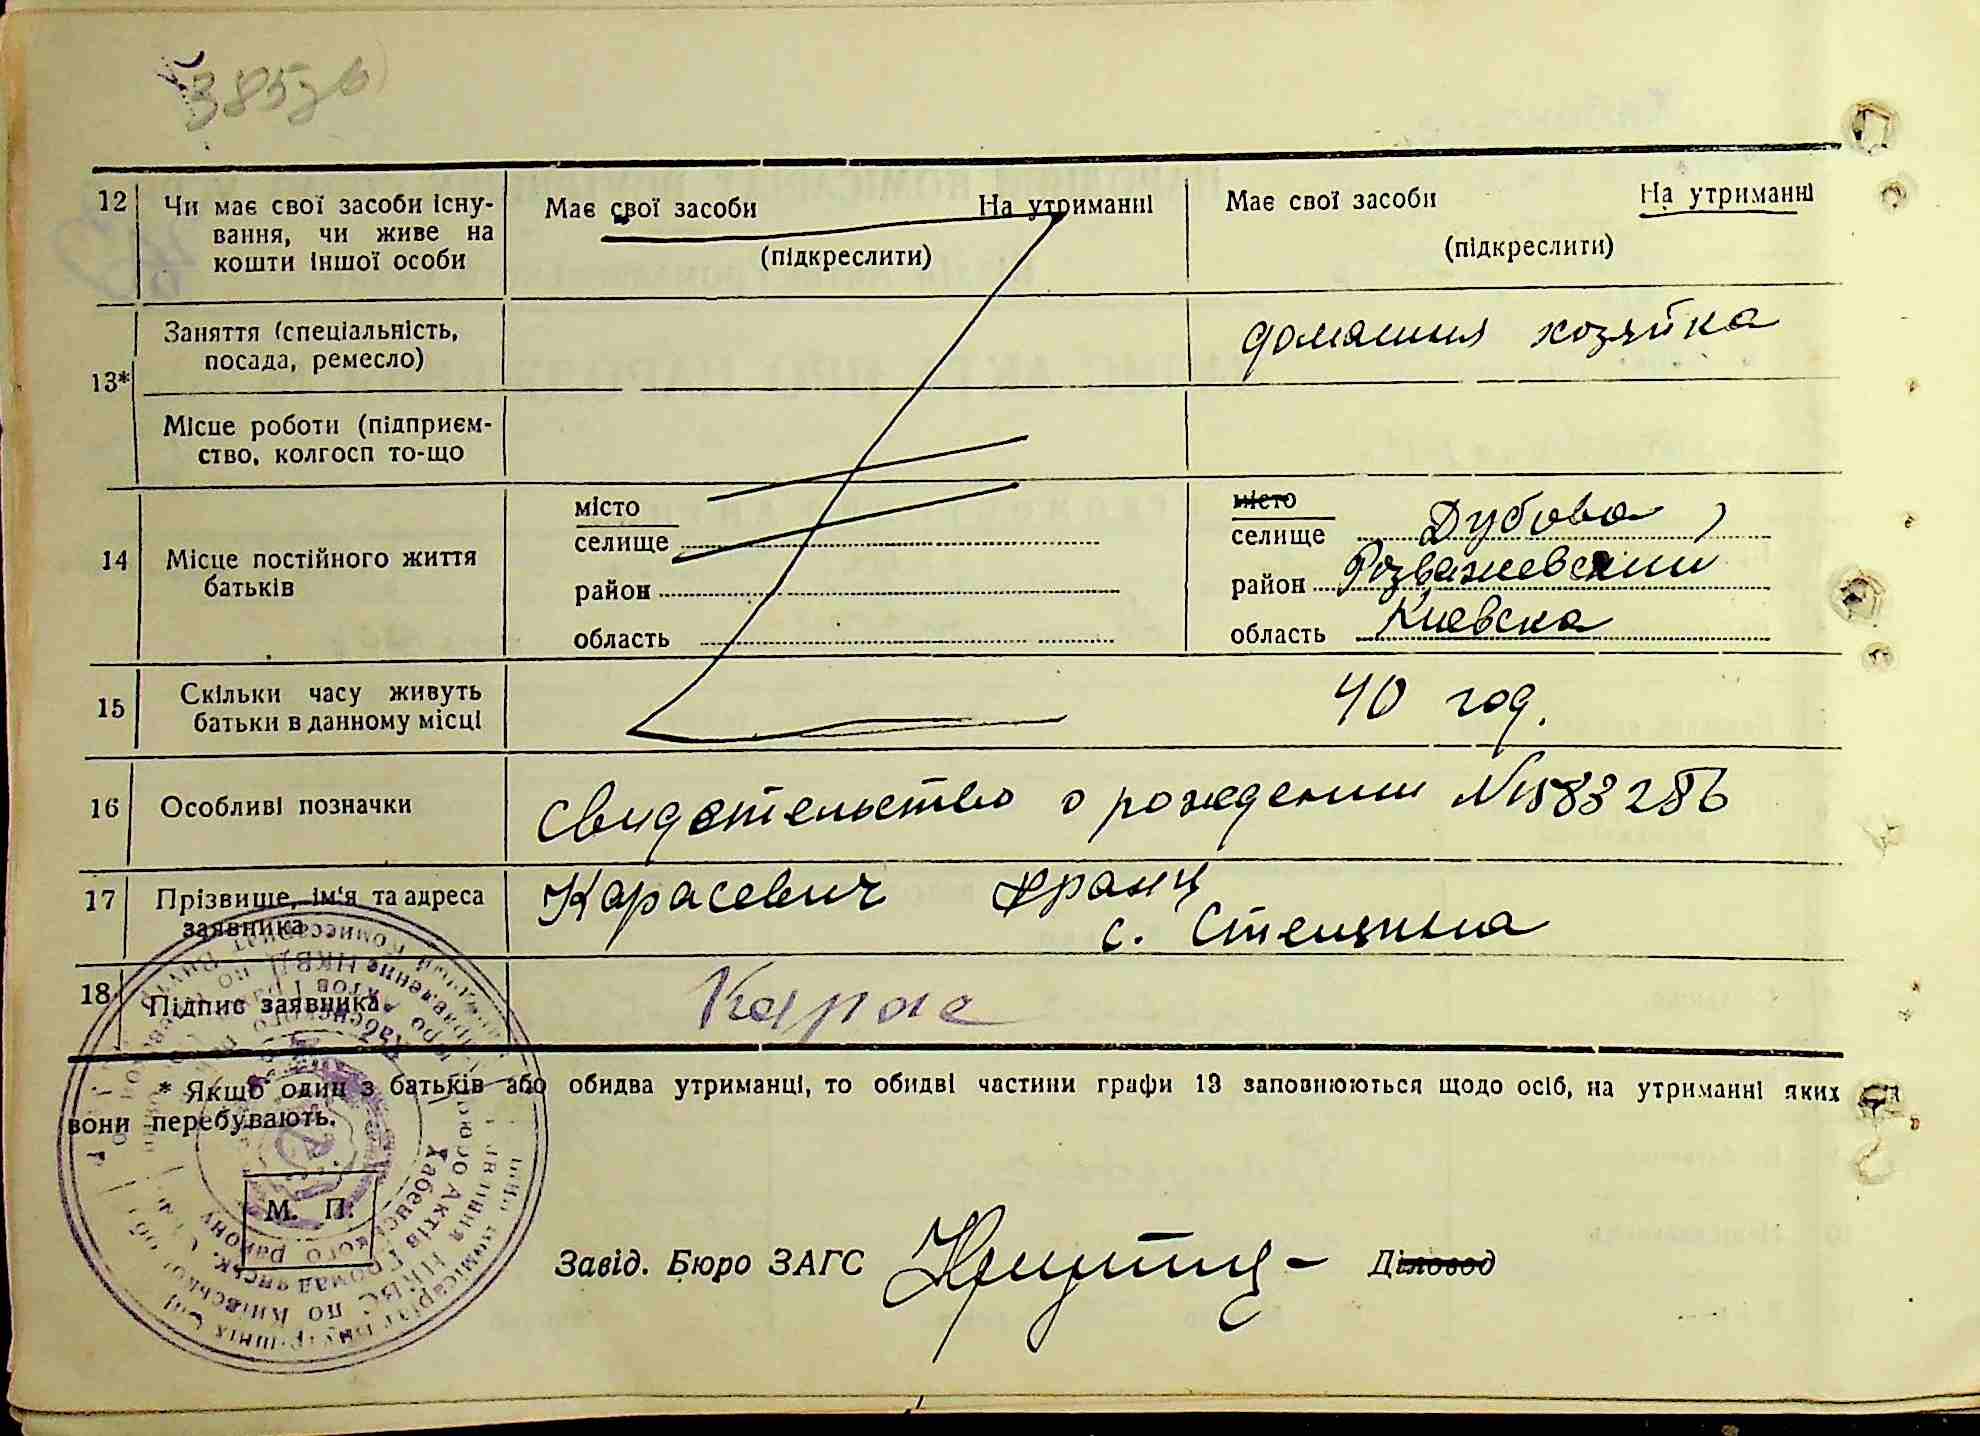 12 Чи має свої засоби існу- Має свої засоби На утриманні Має свої засоби На утриманні
вання, чи живе на (підкреслити) (підкреслити)
кошти іншої особи
13* Заняття (спеціальність, домашняя хозяйка
посада, ремесло)
Місце роботи (підприєм-
ство, колгосп то-що
14 Місце постійного життя
батьків
місто
селище
район
область
місто
селище Дубова
район Розважевский
область Киевска
15 Скільки часу живуть 40 год.
батьки в данному місці
16 Особливі позначки свидетельство о рождении №
17 Прізвище, ім'я та адреса Карасевич Франц
заявника с. Стещина
18 Підпис заявника Карас
* Якщо один з батьків або обидва утриманці, то обидві частини графи 13 заповнюються щодо осіб, на утриманні яких
вони перебувають.
М. П.
Завід. Бюро ЗАГС Діловод